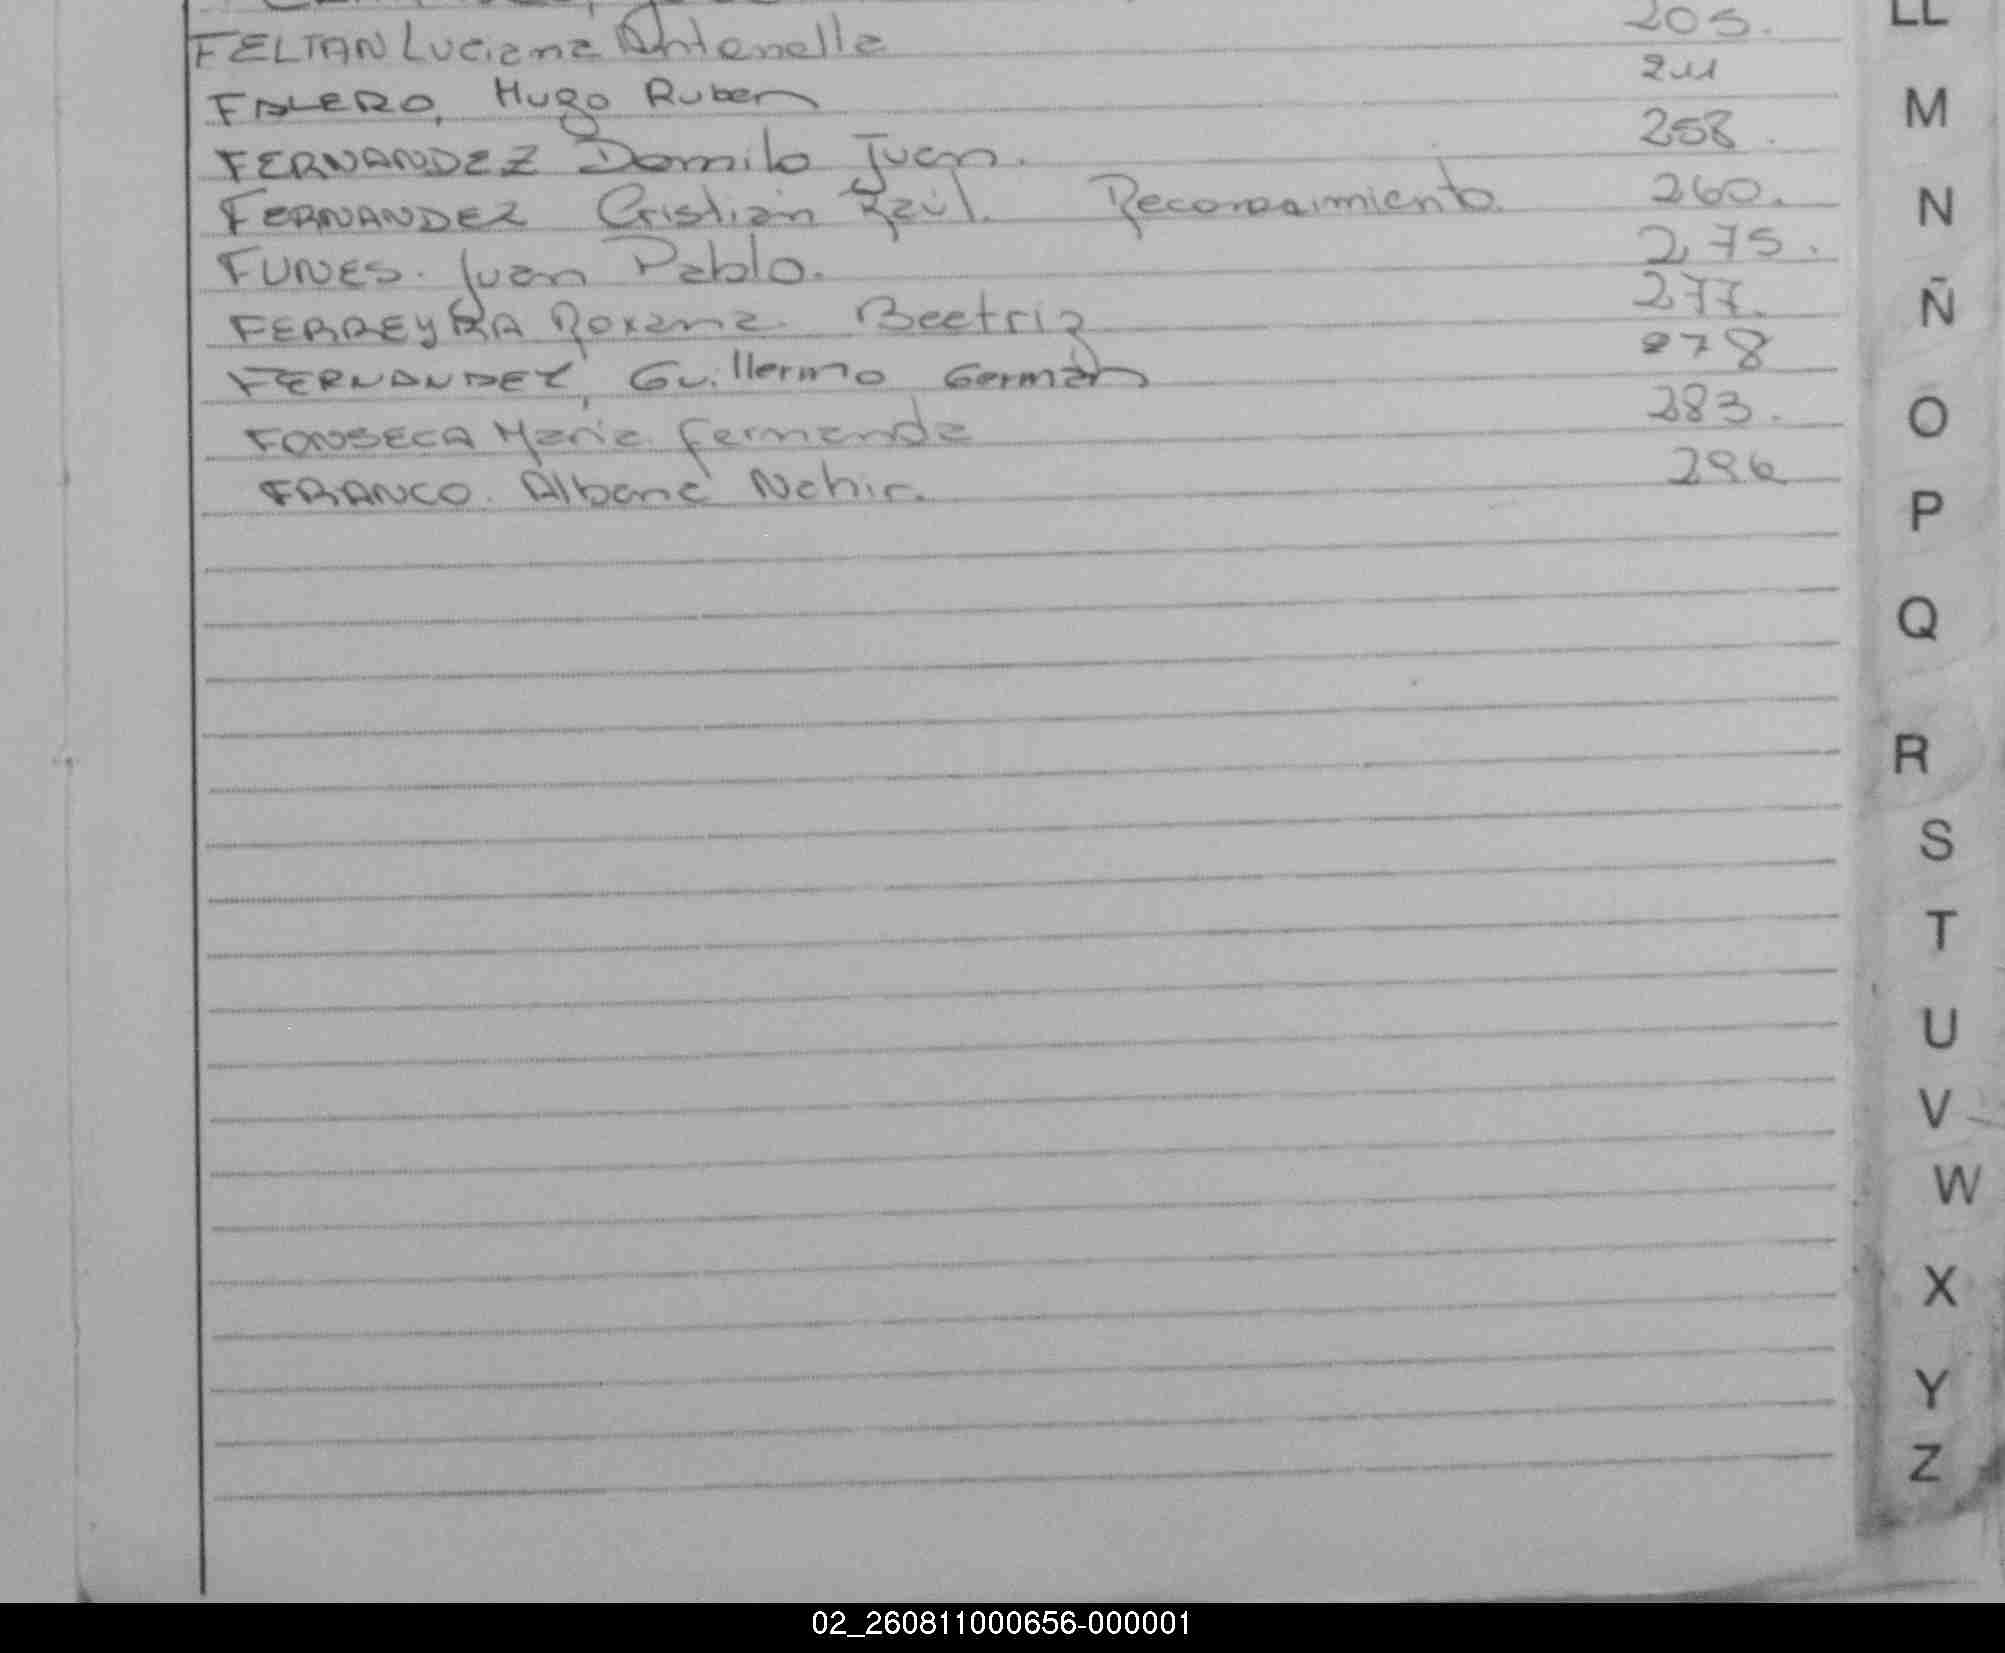 FELTAN Luciana Antonella 205.
FALERO, Hugo Ruben 211
FERNANDEZ Danilo Juan. 258.
FERNANDEZ Cristian Raúl. Reconocimiento 260.
FUNES. Juan Pablo. 275.
FERREYRA Roxana Beatriz 277.
FERNANDEZ, Guillermo Germán 278
FONSECA Maria Fernanda 283.
FRANCO. Albana Nahir. 296
LL
M
N
Ñ
O
P
Q
R
S
T
U
V
W
X
Y
Z
02_260811000656-000001